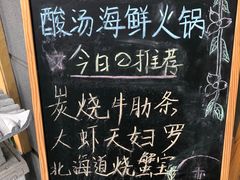 酸汤海鲜火锅
今日の推荐
炭烧牛肋条
大虾天妇罗
北海道烧蟹宝